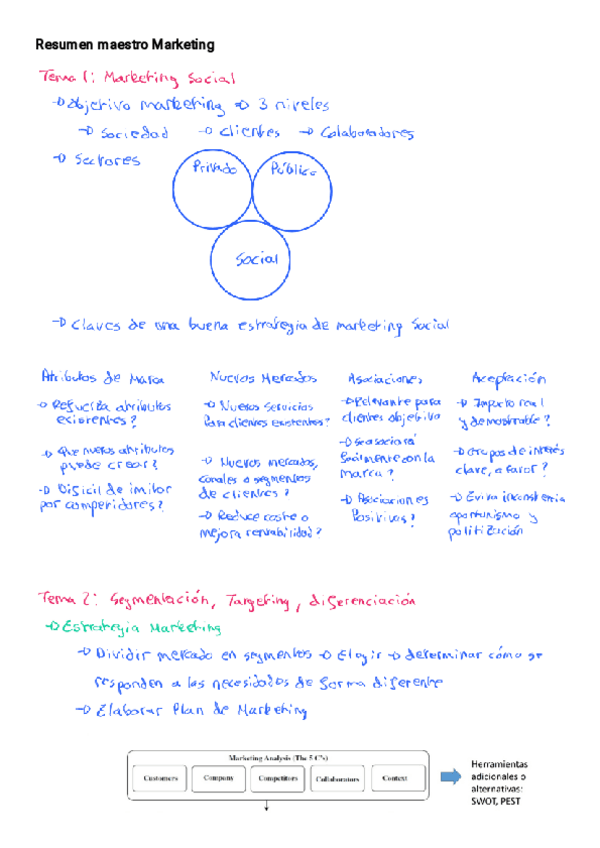 Resumen maestro Marketing
Tema 1: Marketing Social
→ Objetivo marketing → 3 niveles
→ Sociedad → Clientes → Colaboradores
→ Sectores
Privado Pública
Social
→ Claves de una buena estrategia de marketing Social
Atributos de Marca
→ Refuerza atributos existentes?
→ Que nuevos atributos puede crear?
→ Dificil de imitar por competidores?
Nuevos Mercados
→ Nuevos servicios para clientes existentes?
→ Nuevos mercados, canales o segmentos de clientes?
→ Reduce coste o mejora rentabilidad?
Asociaciones
→ Relevante para clientes objetivo
→ Se asociará facilmente con la marca?
→ Asociaciones Positivas?
Aceptación
→ Impacto real y demostrable?
→ Grupos de interés clave, a favor?
→ Evitar inconsistencia oportunismo y politización
Tema 2: Segmentación, Targeting, diferenciación
→ Estrategia Marketing
→ Dividir mercado en segmentos → Elegir → determinar cómo se
responden a las necesidades de forma diferente
→ Elaborar Plan de Marketing
Marketing Analysis (The 5 C's)
Customers Company Competitors Collaborators Context
Herramientas
adicionales o
alternativas:
SWOT, PEST